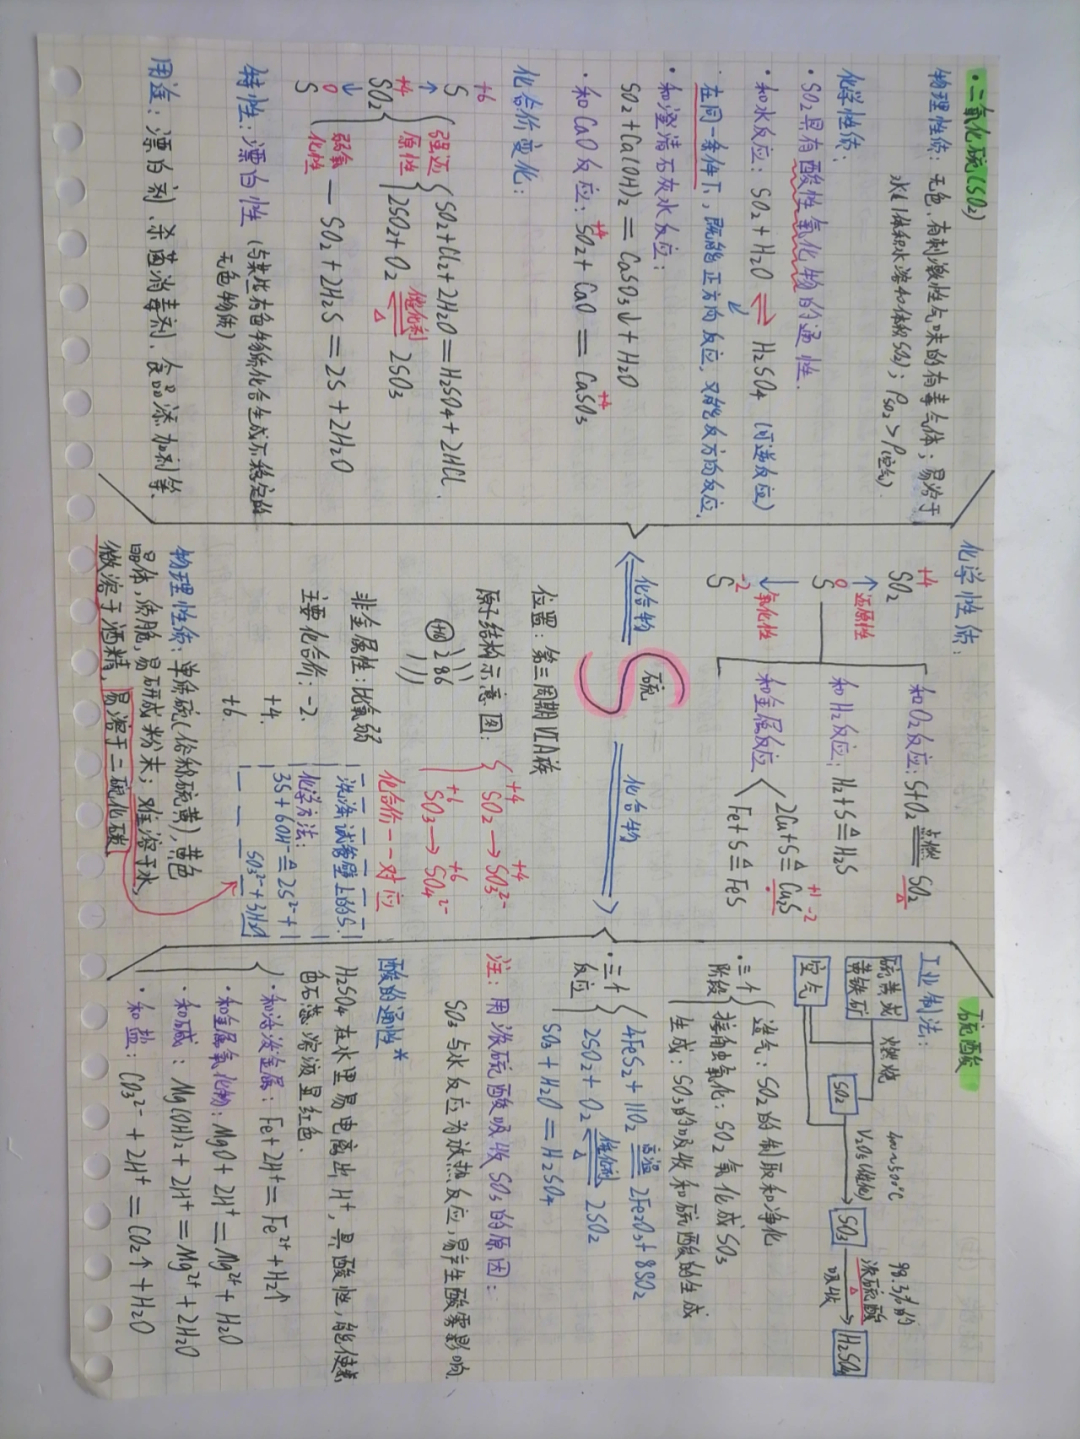 ·二氧化硫(SO₂)
物理性质：无色、有刺激性气味的有毒气体；易溶于
水(1体积水溶40体积SO₂)；ρSO₂＞ρ(空气).
化学性质：
·SO₂具有酸性氧化物的通性.
·和水反应：SO₂+H₂O ⇌ H₂SO₄ (可逆反应)
在同一条件下，既能正方向反应，又能反方向反应.
·和澄清石灰水反应：
SO₂+Ca(OH)₂＝CaSO₃↓+H₂O
·和CaO反应：SO₂+CaO＝CaSO₃
+4 +4
化合价变化：
+6
S
↑ 强还原性 SO₂+Cl₂+2H₂O＝H₂SO₄+2HCl.
+4
SO₂ 2SO₂+O₂ ⇌ 2SO₃
催化剂
△
↓ 弱氧化性 — SO₂+2H₂S＝2S+2H₂O
0
S
特性：漂白性 (与某些有色物质化合生成不稳定的
无色物质)
用途：漂白剂、杀菌消毒剂、食品添加剂等.
化学性质：
+4
SO₂
↑还原性
0
S
↓氧化性
-2
S
和O₂反应：S+O₂ 点燃＝ SO₂
△
和H₂反应：H₂+S △＝ H₂S
和金属反应
+1 -2
2Cu+S △＝ Cu₂S
Fe+S △＝ FeS
化合物
硫
S
化合物
位置：第三周期ⅥA族
原子结构示意图：
+16 2 8 6
+4 +4
SO₂→SO₃²⁻
+6 +6
SO₃→SO₄²⁻
化合价一一对应
非金属性：比氧弱
主要化合价：-2.
+4.
+6.
洗涤试管壁上的S.
化学方法：
3S+6OH⁻ △＝ 2S²⁻+
SO₃²⁻+3H₂O
物理性质：单质硫(俗称硫黄)，黄色
晶体，质脆，易研成粉末；难溶于水，
微溶于酒精，易溶于二硫化碳
硫酸
工业制法：
硫黄或
黄铁矿
空气
燃烧
SO₂
400~500℃
V₂O₅(催化)
SO₃
98.3%的
浓硫酸
吸收
H₂SO₄
·三个阶段
造气：SO₂的制取和净化
接触氧化：SO₂氧化成SO₃
生成：SO₃的吸收和硫酸的生成
·三个反应
4FeS₂+11O₂ 高温＝ 2Fe₂O₃+8SO₂
2SO₂+O₂ ⇌ 2SO₂
催化剂
△
SO₃+H₂O＝H₂SO₄
注：用浓硫酸吸收SO₃的原因：
SO₃与水反应为放热反应，易产生酸雾影响、
酸的通性*
H₂SO₄在水里易电离出H⁺，具酸性，能使紫
色石蕊溶液显红色.
·和活泼金属：Fe+2H⁺＝Fe²⁺+H₂↑
·和金属氧化物：MgO+2H⁺＝Mg²⁺+H₂O
·和碱：Mg(OH)₂+2H⁺＝Mg²⁺+2H₂O
·和盐：CO₃²⁻+2H⁺＝CO₂↑+H₂O